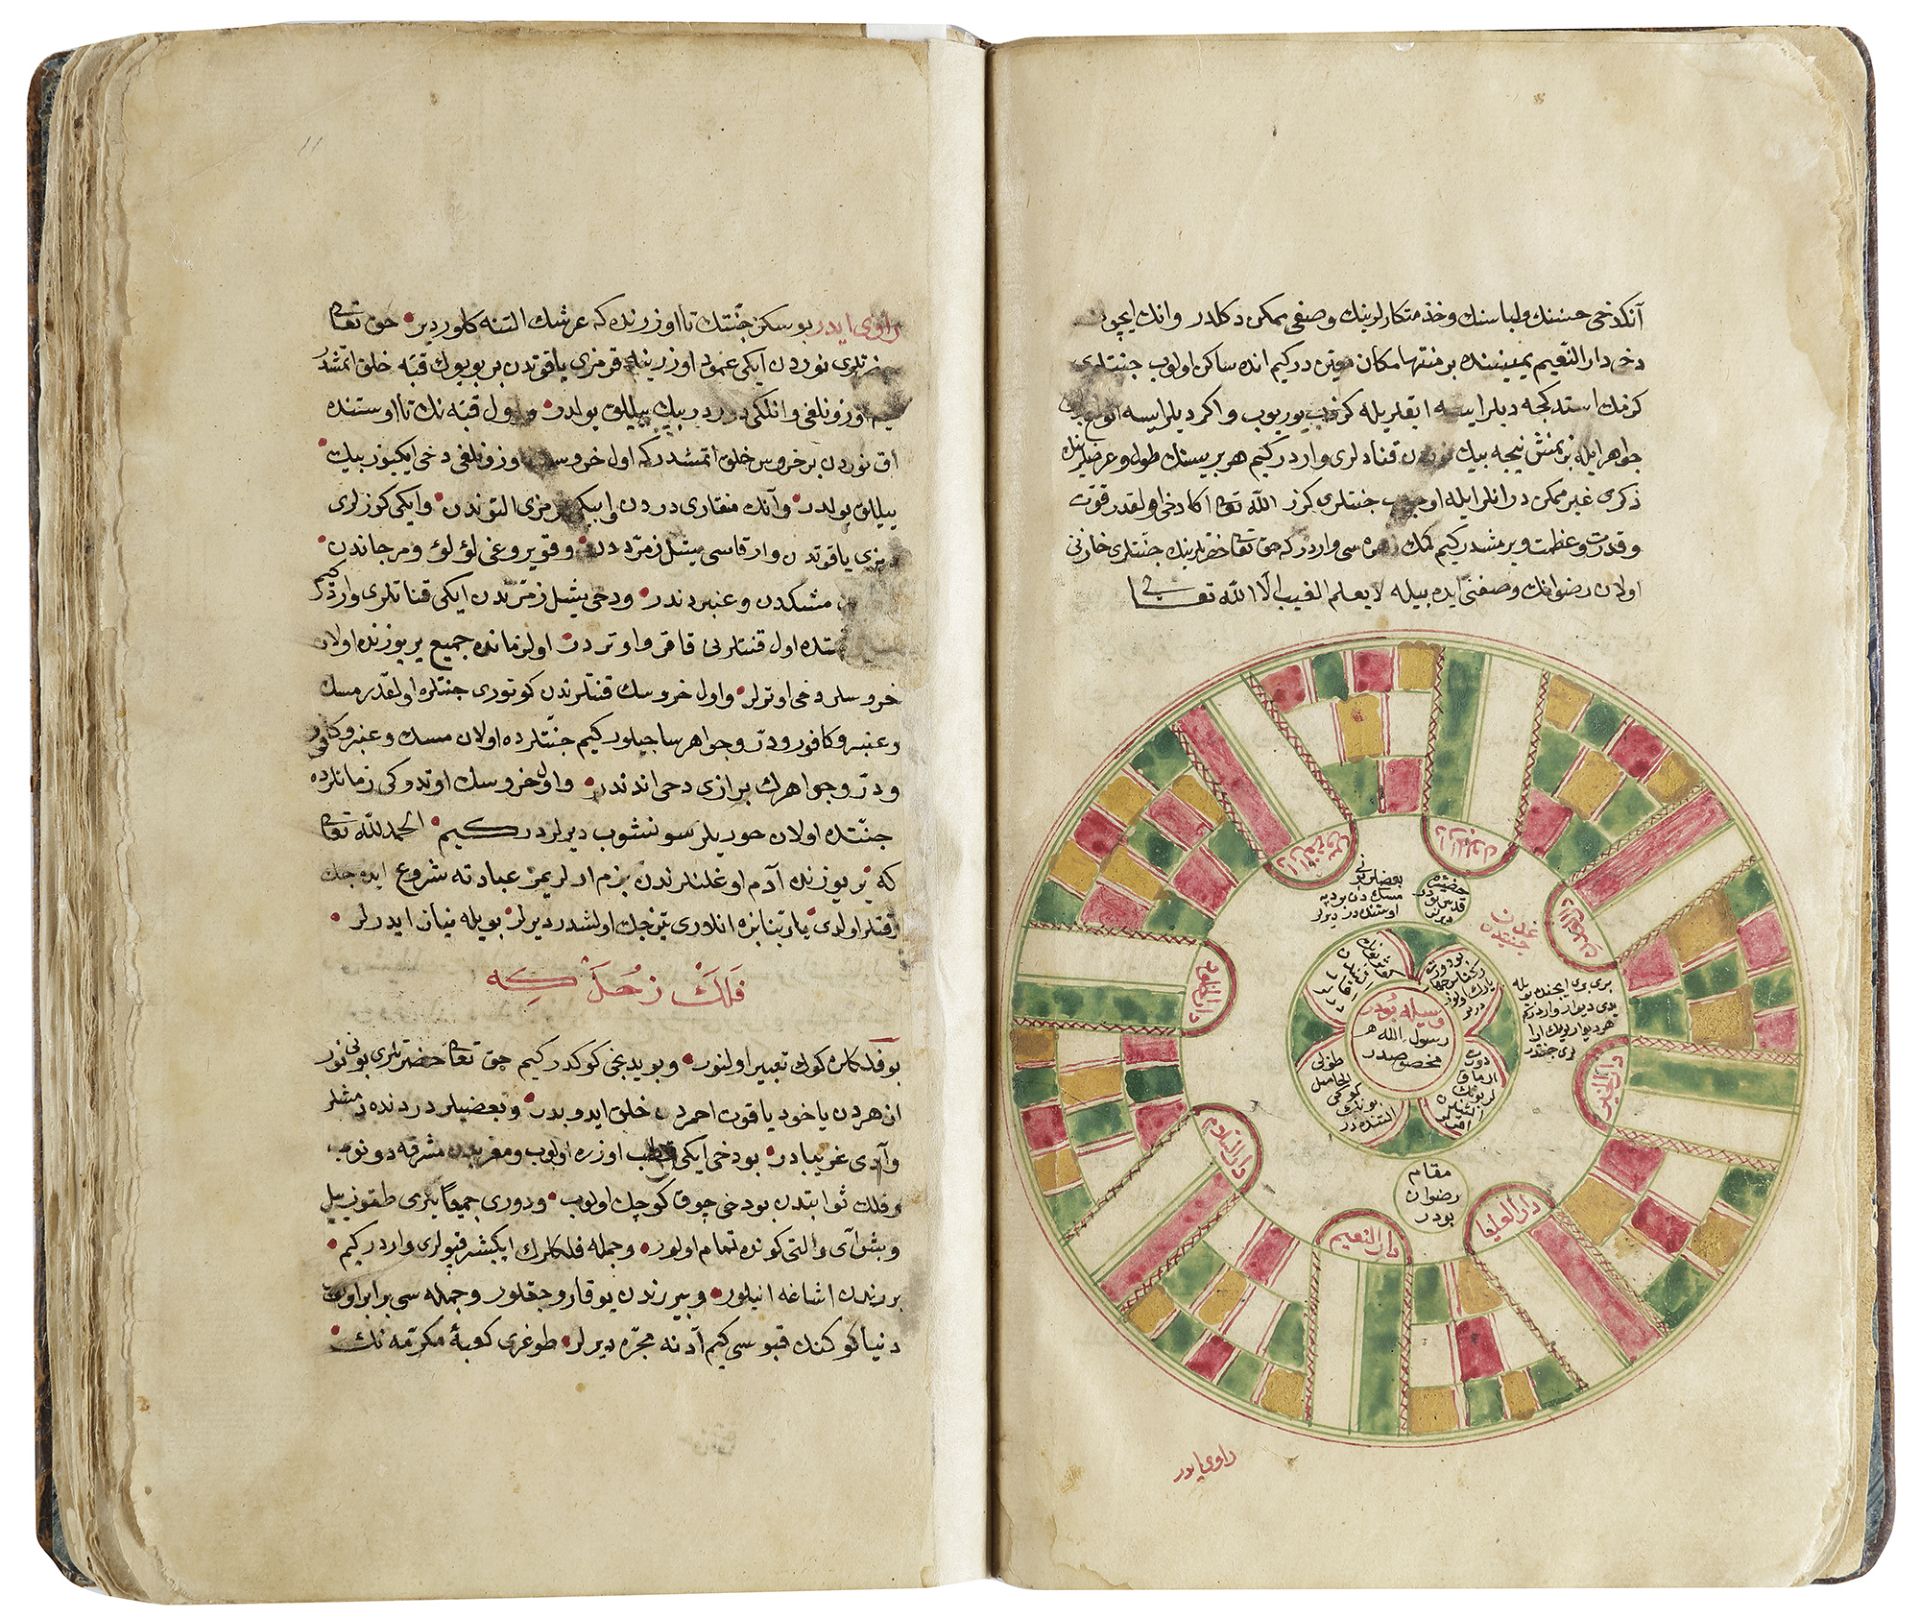 آنكدخى حسننك ولباسنك وخذمتكارلرينك وصفى ممكن دكلدر وانك ايچون
دخى دار النعيم يميننده بر منتها مكان معين دركيم انده ساكن اولوب جنتلرى
كزمك استدكجه ديلر ايسه ايقلريله كزوب يوريوب واكر ديلرايسه
جواهرايله بزنمش نيجه بيك نوردن قنادلرى واردركيم هر بريسنك طول وعرضلرينك
ذكرى غير ممكن در انلرايله اوچوب جنتلرى كزر الله تعالى اكا دخى اولقدر قوت
وقدرت وعظمت ويرمشدركيم كمك زهره سى واردركه حق تعالى حضرتلرينك جنتلرى خازنى
اولان رضوانك وصفنى ايده بيله لا يعلم الغيب الا الله تعالى
دار القرار
غدن جنتيدر
حضيرة قدس بودر ديرلر
بعضلر بونى
مسك دن بر دپه
اوستنده در ديرلر
برى برى ايچنده بويله
يدى ديوار واردر
هر ديوارينك ارا
لرى جنتدر
وسيله بودر
رسول الله
مخصوصدر
طوبى
بونك
التنده در
مقام
رضوان
بودر
دار السلام
دار النعيم
راوى ايدر
١١
راوى ايدر بو سكز جنتك تا اوزرنده كه عرشك التنه كلور دير حق تعالى
حضرتلرى نوردن ايكى عمود اوزرينه قرمزى ياقوتدن بر بويوك قبه خلق اتمشدر
كيم اوزونلغى وانلكى دردر بيك ييللق يولدر واول قبه نك تا اوستنده
اق نوردن بر خروس خلق اتمشدركه اول خروسك اوزونلغى دخى ايكيوز بيك
ييللق يولدر وآنك منقارى دردن وايبكى قرمزى التوندن وايكى كوزلرى
قرمزى ياقوتدن وارقاسى يشل زمرددن وقويروغى لؤلؤ ومرجاندن
مشكدن وعنبردندر ودخى يشل زمرددن ايكى قناتلرى واردركيم
اول قنتلرنى قاقر واوتر در اول زمانده جميع ير يوزنده اولان
خروسلر دخى اوتر لر واول خروسك قنتلرندن كوتورى جنتلره اولقدر مسك
وعنبر وكافور ودر وجواهر ساچيلور كيم جنتلرده اولان مسك وعنبر وكافور
ودر وجواهرك برازى دخى اندندر واول خروسك اوتدوكى زمانلرده
جنتده اولان حوريلر سونشوب ديرلردركيم الحمد لله تعالى
كه ير يوزنده آدم اوغلنلرندن بزم ارلريمز عبادته شروع ايده جك
وقتلر اولدى يا ربنا بزه انلارى تيزجك اولشدر ديرلر بويله نياز ايدرلر
فلك زحل كه
بو فلكلره كوك تعبير اولنور وبو يدنجى كوكدركيم حق تعالى حضرتلرى بونى نور
ازهردن ياخود ياقوت احمردن خلق ايدوبدر وبعضيلر دردنده دمشلر
وآدى غريبادر بو دخى ايكى قطب اوزره اولوب ومغربدن مشرقه دونوب
وفلك ثوابتدن بو دخى چوق كوچك اولوب ودورى جميعا يكرمى طقوز ييل
وبش آى والتى كونده تمام اولور وجمله فلكلرك ايكيشر قپولرى واردركيم
برندن اشاغه انيلور وبيررندن يوقارو چقلور وجمله سى برابر اولوب
دنيا كوكنك قپوسى كيم آدنه مجره ديرلر طوغرى كعبهٔ مكرمه نك